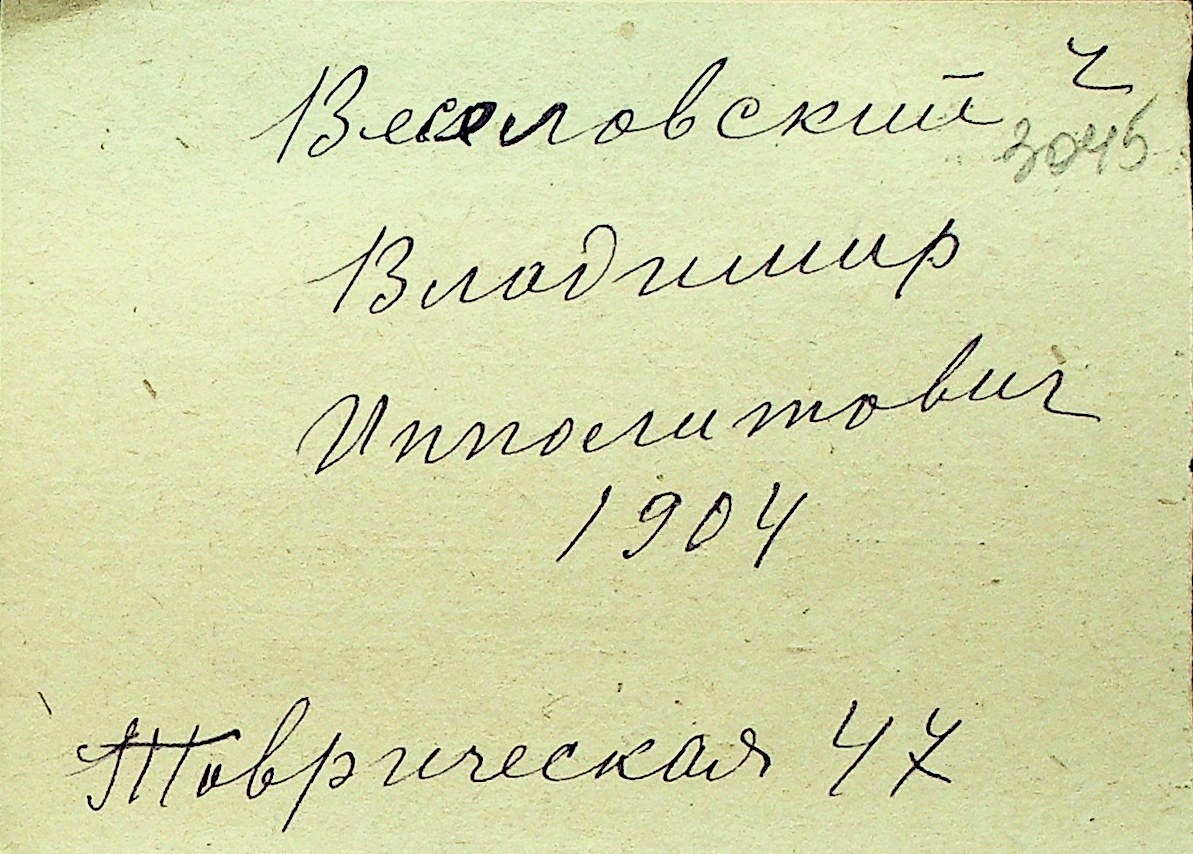 Веселовский ч
3045
Владимир
Ипполитович
1904
Таврическая 47